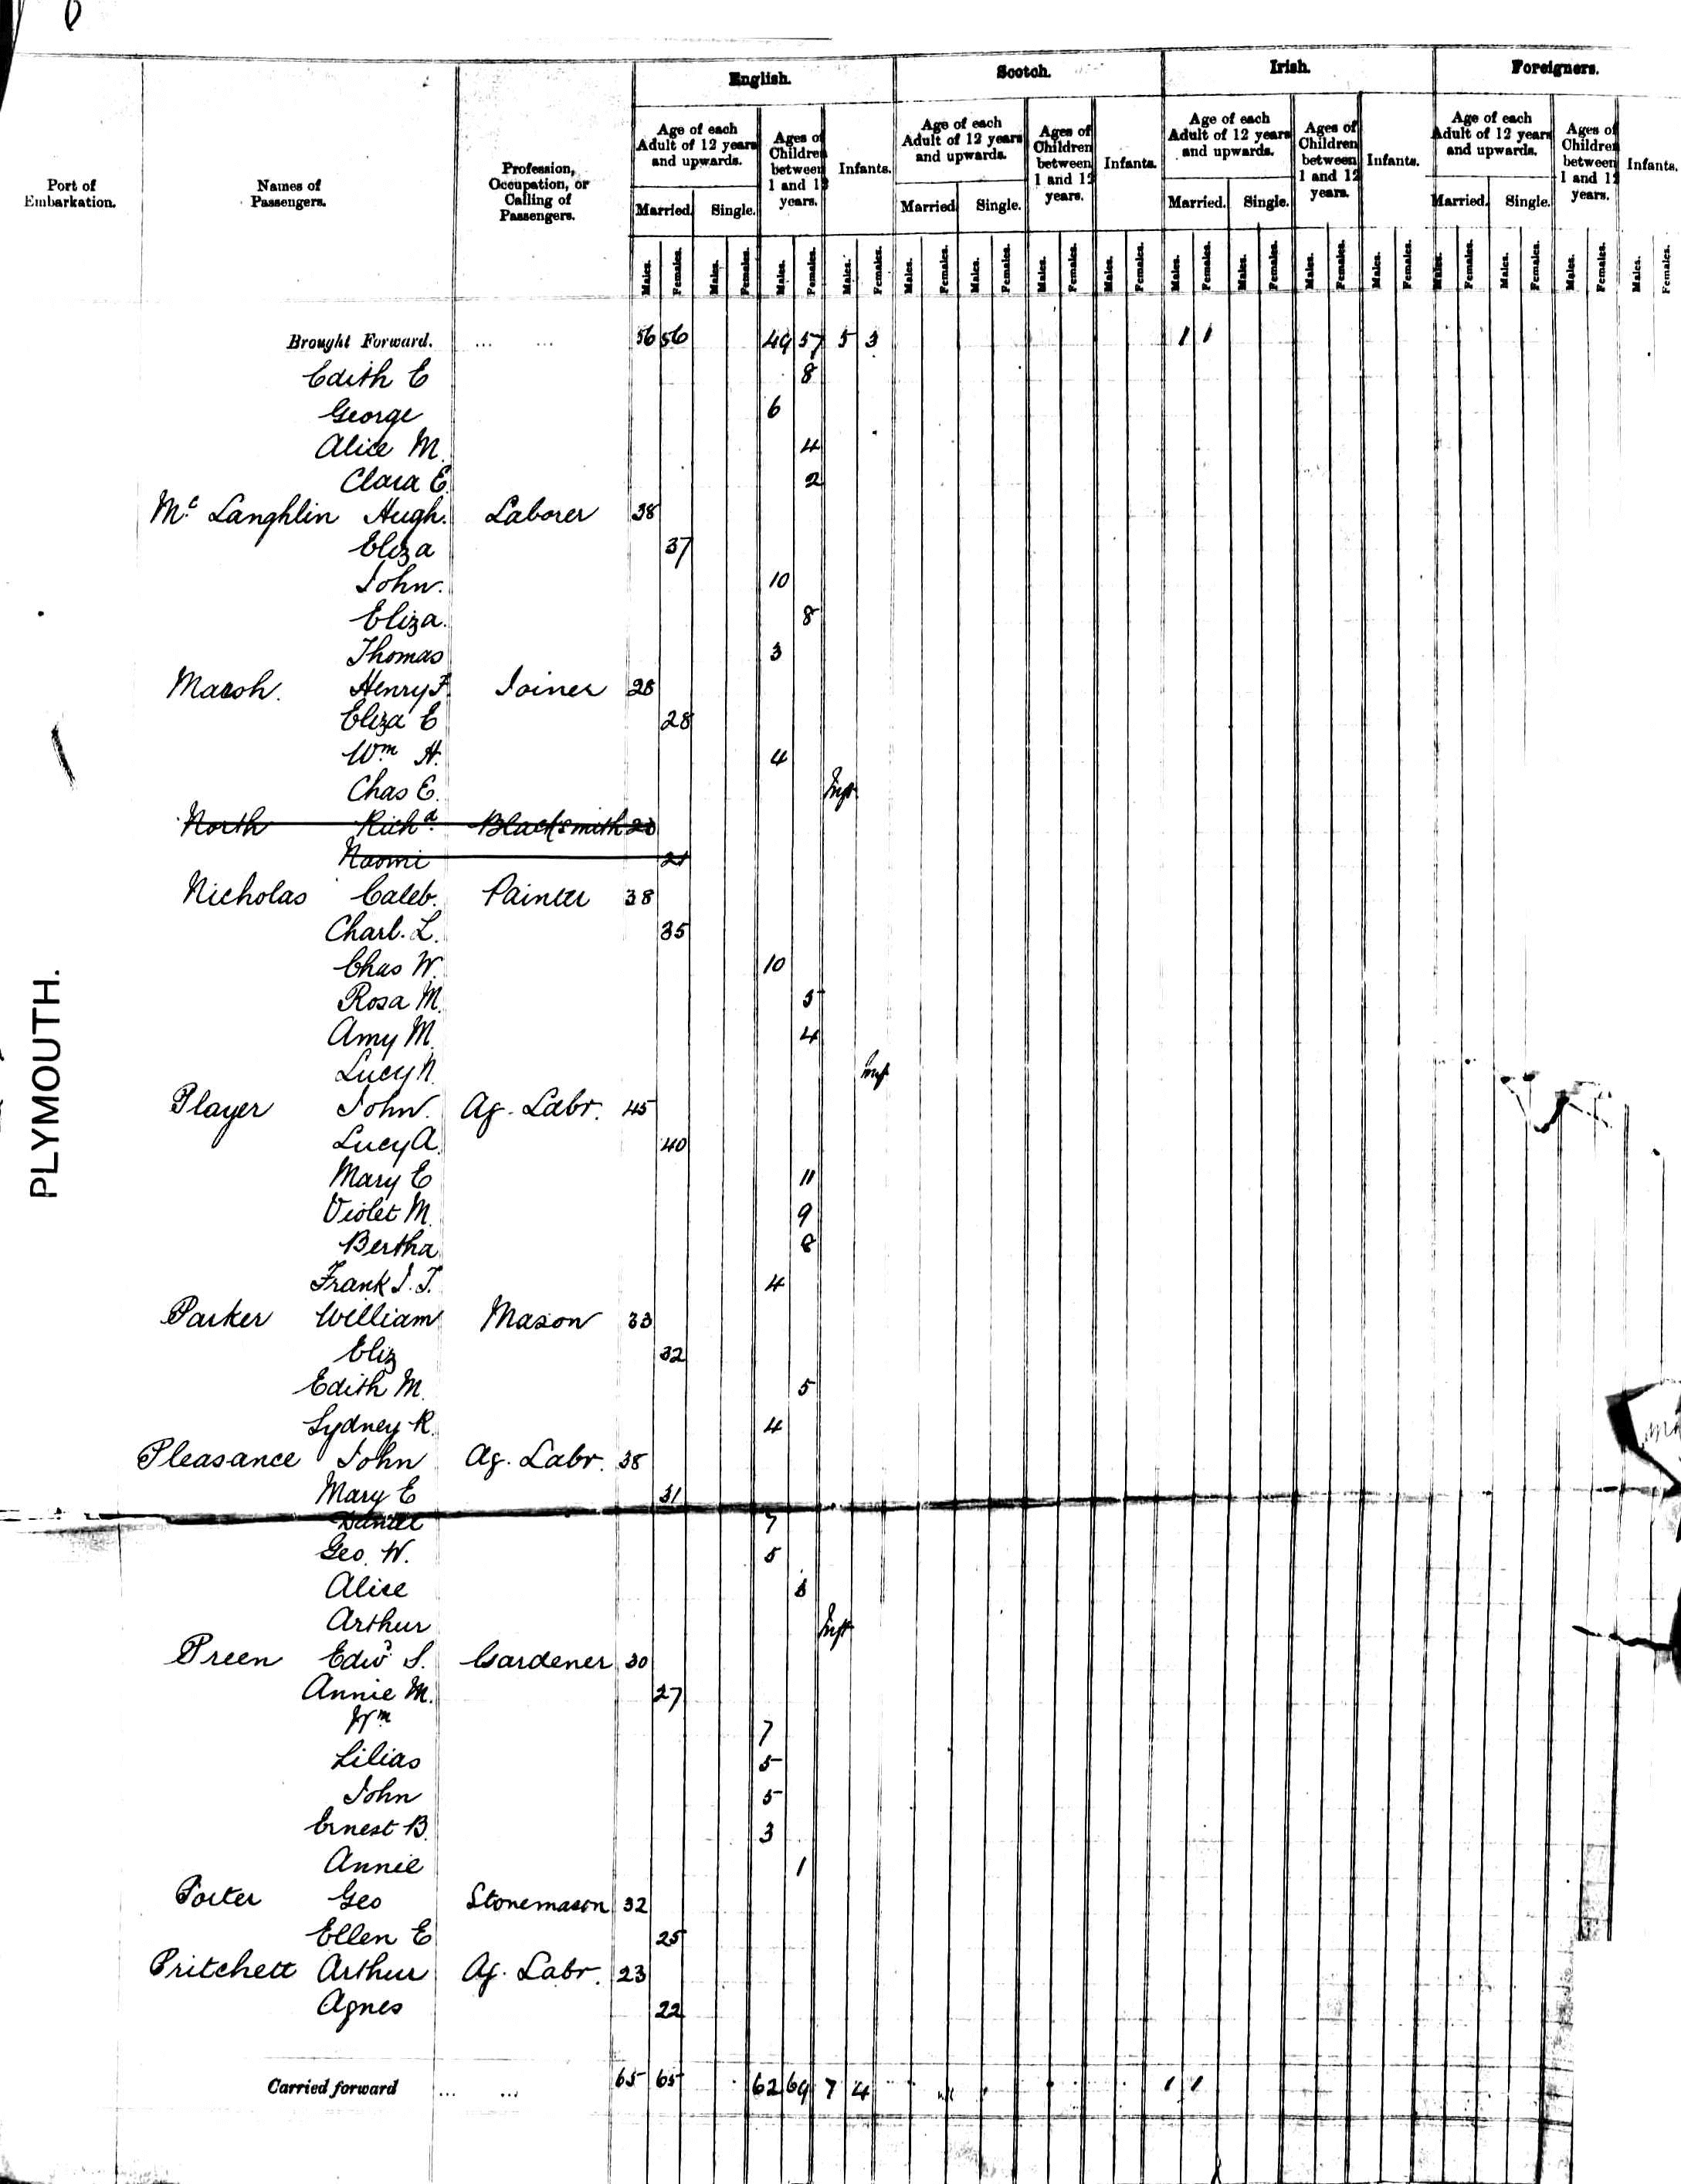 English. Scotch. Irish. Foreigners.
Port of Embarkation. Names of Passengers. Profession, Occupation, or Calling of Passengers.
Age of each Adult of 12 years and upwards. Ages of Children between 1 and 12 years. Infants. Age of each Adult of 12 years and upwards. Ages of Children between 1 and 12 years. Infants. Age of each Adult of 12 years and upwards. Ages of Children between 1 and 12 years. Infants. Age of each Adult of 12 years and upwards. Ages of Children between 1 and 12 years. Infants.
Married. Single. Married. Single. Married. Single. Married. Single.
Males. Females. Males. Females. Males. Females. Males. Females. Males. Females. Males. Females. Males. Females. Males. Females. Males. Females. Males. Females. Males. Females. Males. Females. Males. Females. Males. Females. Males. Females. Males. Females.
Brought Forward. ... ... 56 56 49 57 5 3 1 1
Edith E 8
George 6
Alice M. 4
Clara E. 2
Mc Langhlin Hugh. Laborer 38
Eliza 37
John. 10
Eliza. 8
Thomas 3
Marsh. Henry F. Joiner 28
Eliza E 28
Wm H. 4
Chas E. Inft
North Richd. Blacksmith
Naomi 21
Nicholas Caleb. Painter 38
Charl. L. 35
Chas W. 10
Rosa M. 5
Amy M. 4
Lucy N. Inf
Player John. Ag. Labr. 45
Lucy A. 40
Mary E 11
Violet M. 9
Bertha 8
Frank J. T. 4
Parker William Mason 33
Eliz 32
Edith M. 5
Sydney R. 4
Pleasance John Ag. Labr. 38
Mary E 31
Daniel 7
Geo. W. 5
Alice
Arthur Inft
Preen Edwd S. Gardener 30
Annie M. 27
Wm 7
Lilias 5
John 5
Ernest B. 3
Annie 1
Porter Geo Stonemason 32
Ellen E 25
Pritchett Arthur Ag. Labr. 23
Agnes 22
Carried forward ... ... 65 65 62 69 7 4 1 1
PLYMOUTH.